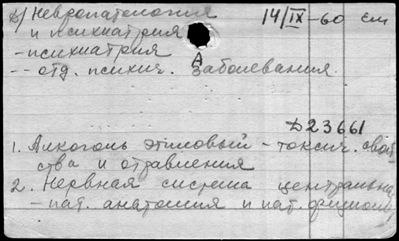 б) Невропатология 14/IX-60 см
и психиатрия
- психиатрия
-- отд. психич. заболевания.
А
Д23661
1. Алкоголь этиловый - токсич. свой-
ства и отравления
2. Нервная система центральна
- пат. анатомия и пат. физиол